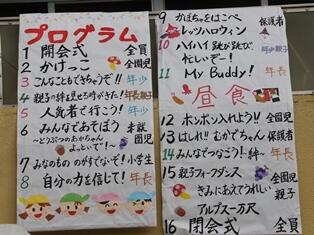 プログラム
1 開会式 全員
2 かけっこ 全園児
3 こんなこともできちゃうぞ!! 年少
4 親子の絆を見せる時がきた! 年長親子
5 人気者で行こう! 年少
6 みんなであそぼう 未就園児
～どうぶつのあかちゃん
よっといで!～
7 みなのもの のがすでないぞ! 小学生
8 自分の力を信じて! 年長
9 かぼちゃをはこべ 保護者
10 レッツハロウィン
ハイハイ
忙しいぞー!
11 My Buddy! 年長
昼食
12 ホンホン入れよう!! 全園児
13 はしれ!! むかでちゃん 保護者
14 みんなでつなごう!～絆～ 年長
15 親子フォークダンス 全園児親子
きみにあえてうれしい
アルプス一万尺
16 閉会式 全員